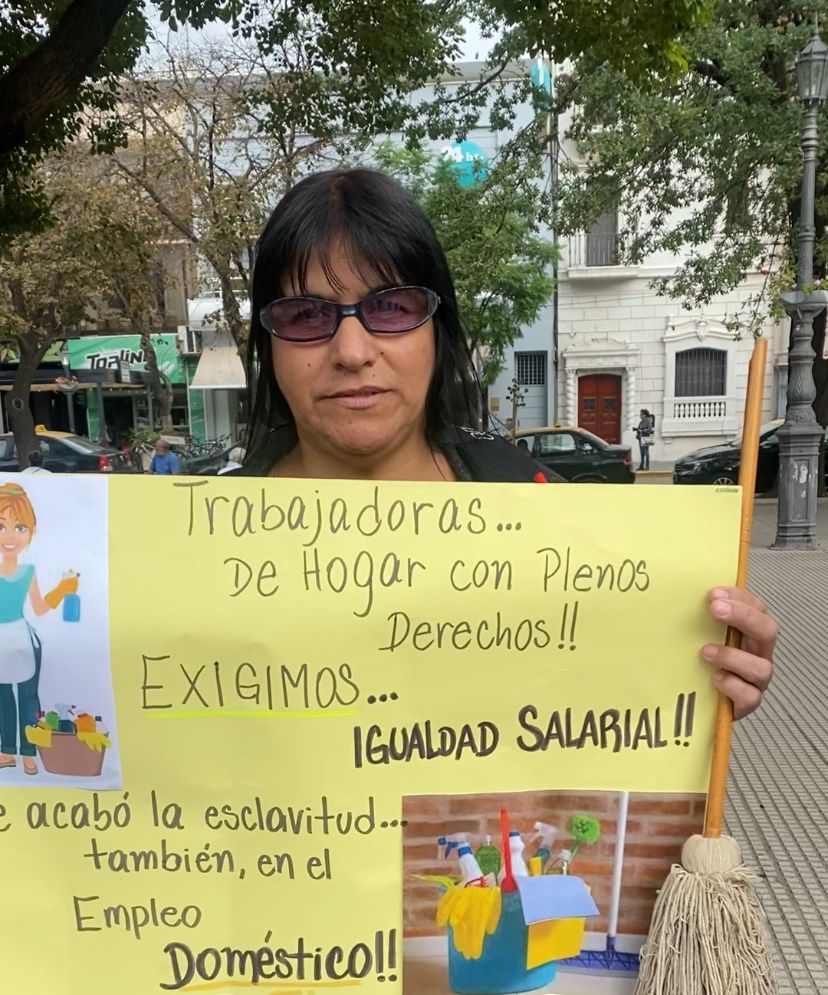 24 hs.
Topline
Trabajadoras...
De Hogar con Plenos
Derechos!!
EXIGIMOS...
IGUALDAD SALARIAL!!
e acabó la esclavitud...
también, en el
Empleo
Doméstico!!